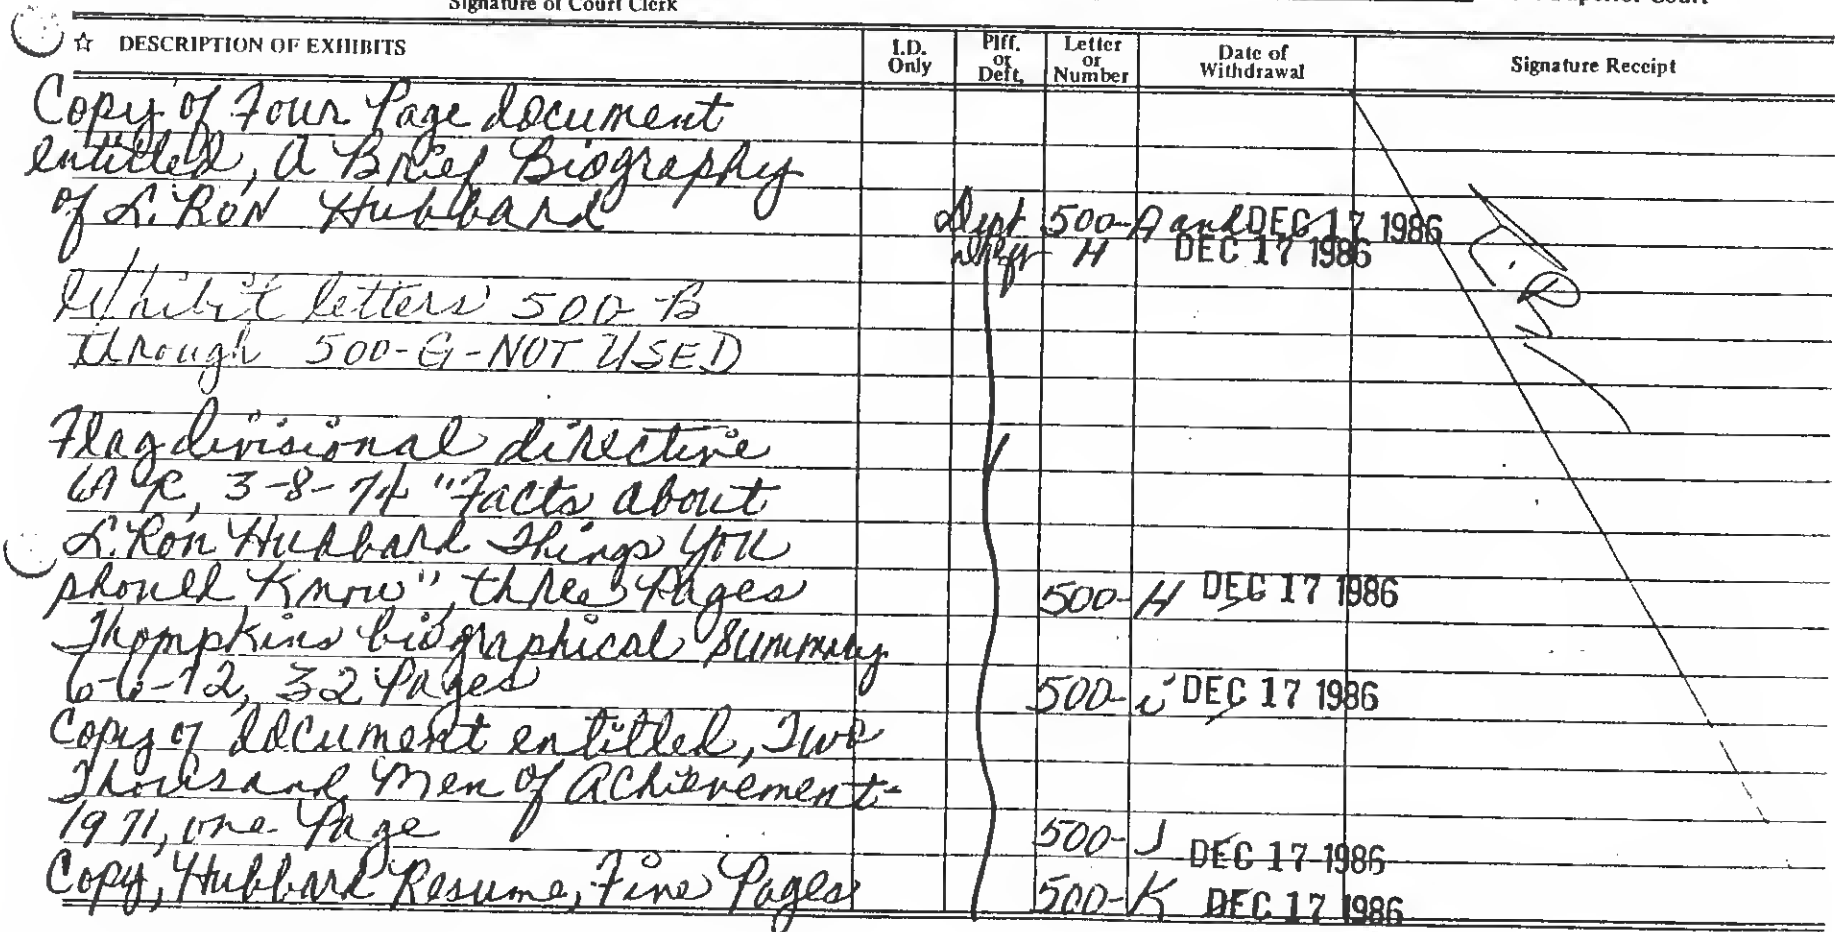 Signature of Court Clerk
Superior Court
☆ DESCRIPTION OF EXHIBITS I.D. Only Plff. or Deft. Letter or Number Date of Withdrawal Signature Receipt
Copy of Four Page document
entitled, A Brief Biography
of L. Ron Hubbard Deft 500-A and DEC 17 1986
H DEC 17 1986
Exhibit letters 500-B
through 500-G-NOT USED
Flag divisional directive
69 R, 3-8-74 "Facts about
L. Ron Hubbard Things you
should know", three pages 500-H DEC 17 1986
Thompkins biographical summary
6-6-72, 32 Pages 500-i DEC 17 1986
Copy of document entitled, Two
Thousand Men of Achievement-
1971, one page 500-J DEC 17 1986
Copy, Hubbard Resume, Five Pages 500-K DEC 17 1986